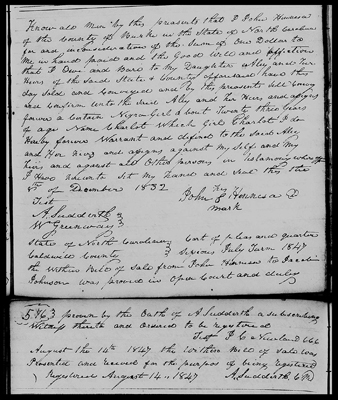 Know all Men by this presents that I John Hennesa
of the County of Burk in the State of North Carolina
for and in consideration of the Sum of One Dollar to
Me in hand paid and the Good Will and affection
that I Owe and to My Daughter Aley and her
Heirs of the Said State & County afforesaid have this
day Sold and Conveyed and by the presents Sell Convey
and Confirm unto the said Aley and her Heirs and assigns
forever a certain Nigro Girl about Twenty three years
of age Name Charlot Which Girl Charlot I do
Hereby forever Warrant and defend to the Said Aley
and Her Heirs and assigns against My Self and My
Heirs and against all Other persons in testamony whereof
I Have hereunto Set my Hand and Seal this the
of December 1832
Test John his Hennesa
mark
A Sudderth
W Greenway
State of North Carolina Cort of pleas and quarter
Caldwell County Sessions July Term 1847
the within Bill of Sale from John Hennesa to
Johnson was proved in Open Court and duly
proven by the Oath of A Sudderth a subscribing
Witness thereto and ordered to be registered
Test
August the 14th 1847 the Within Bill of Sale was
Presented and received for the purpose of being registered
Registered August 14 1847 A Sudderth